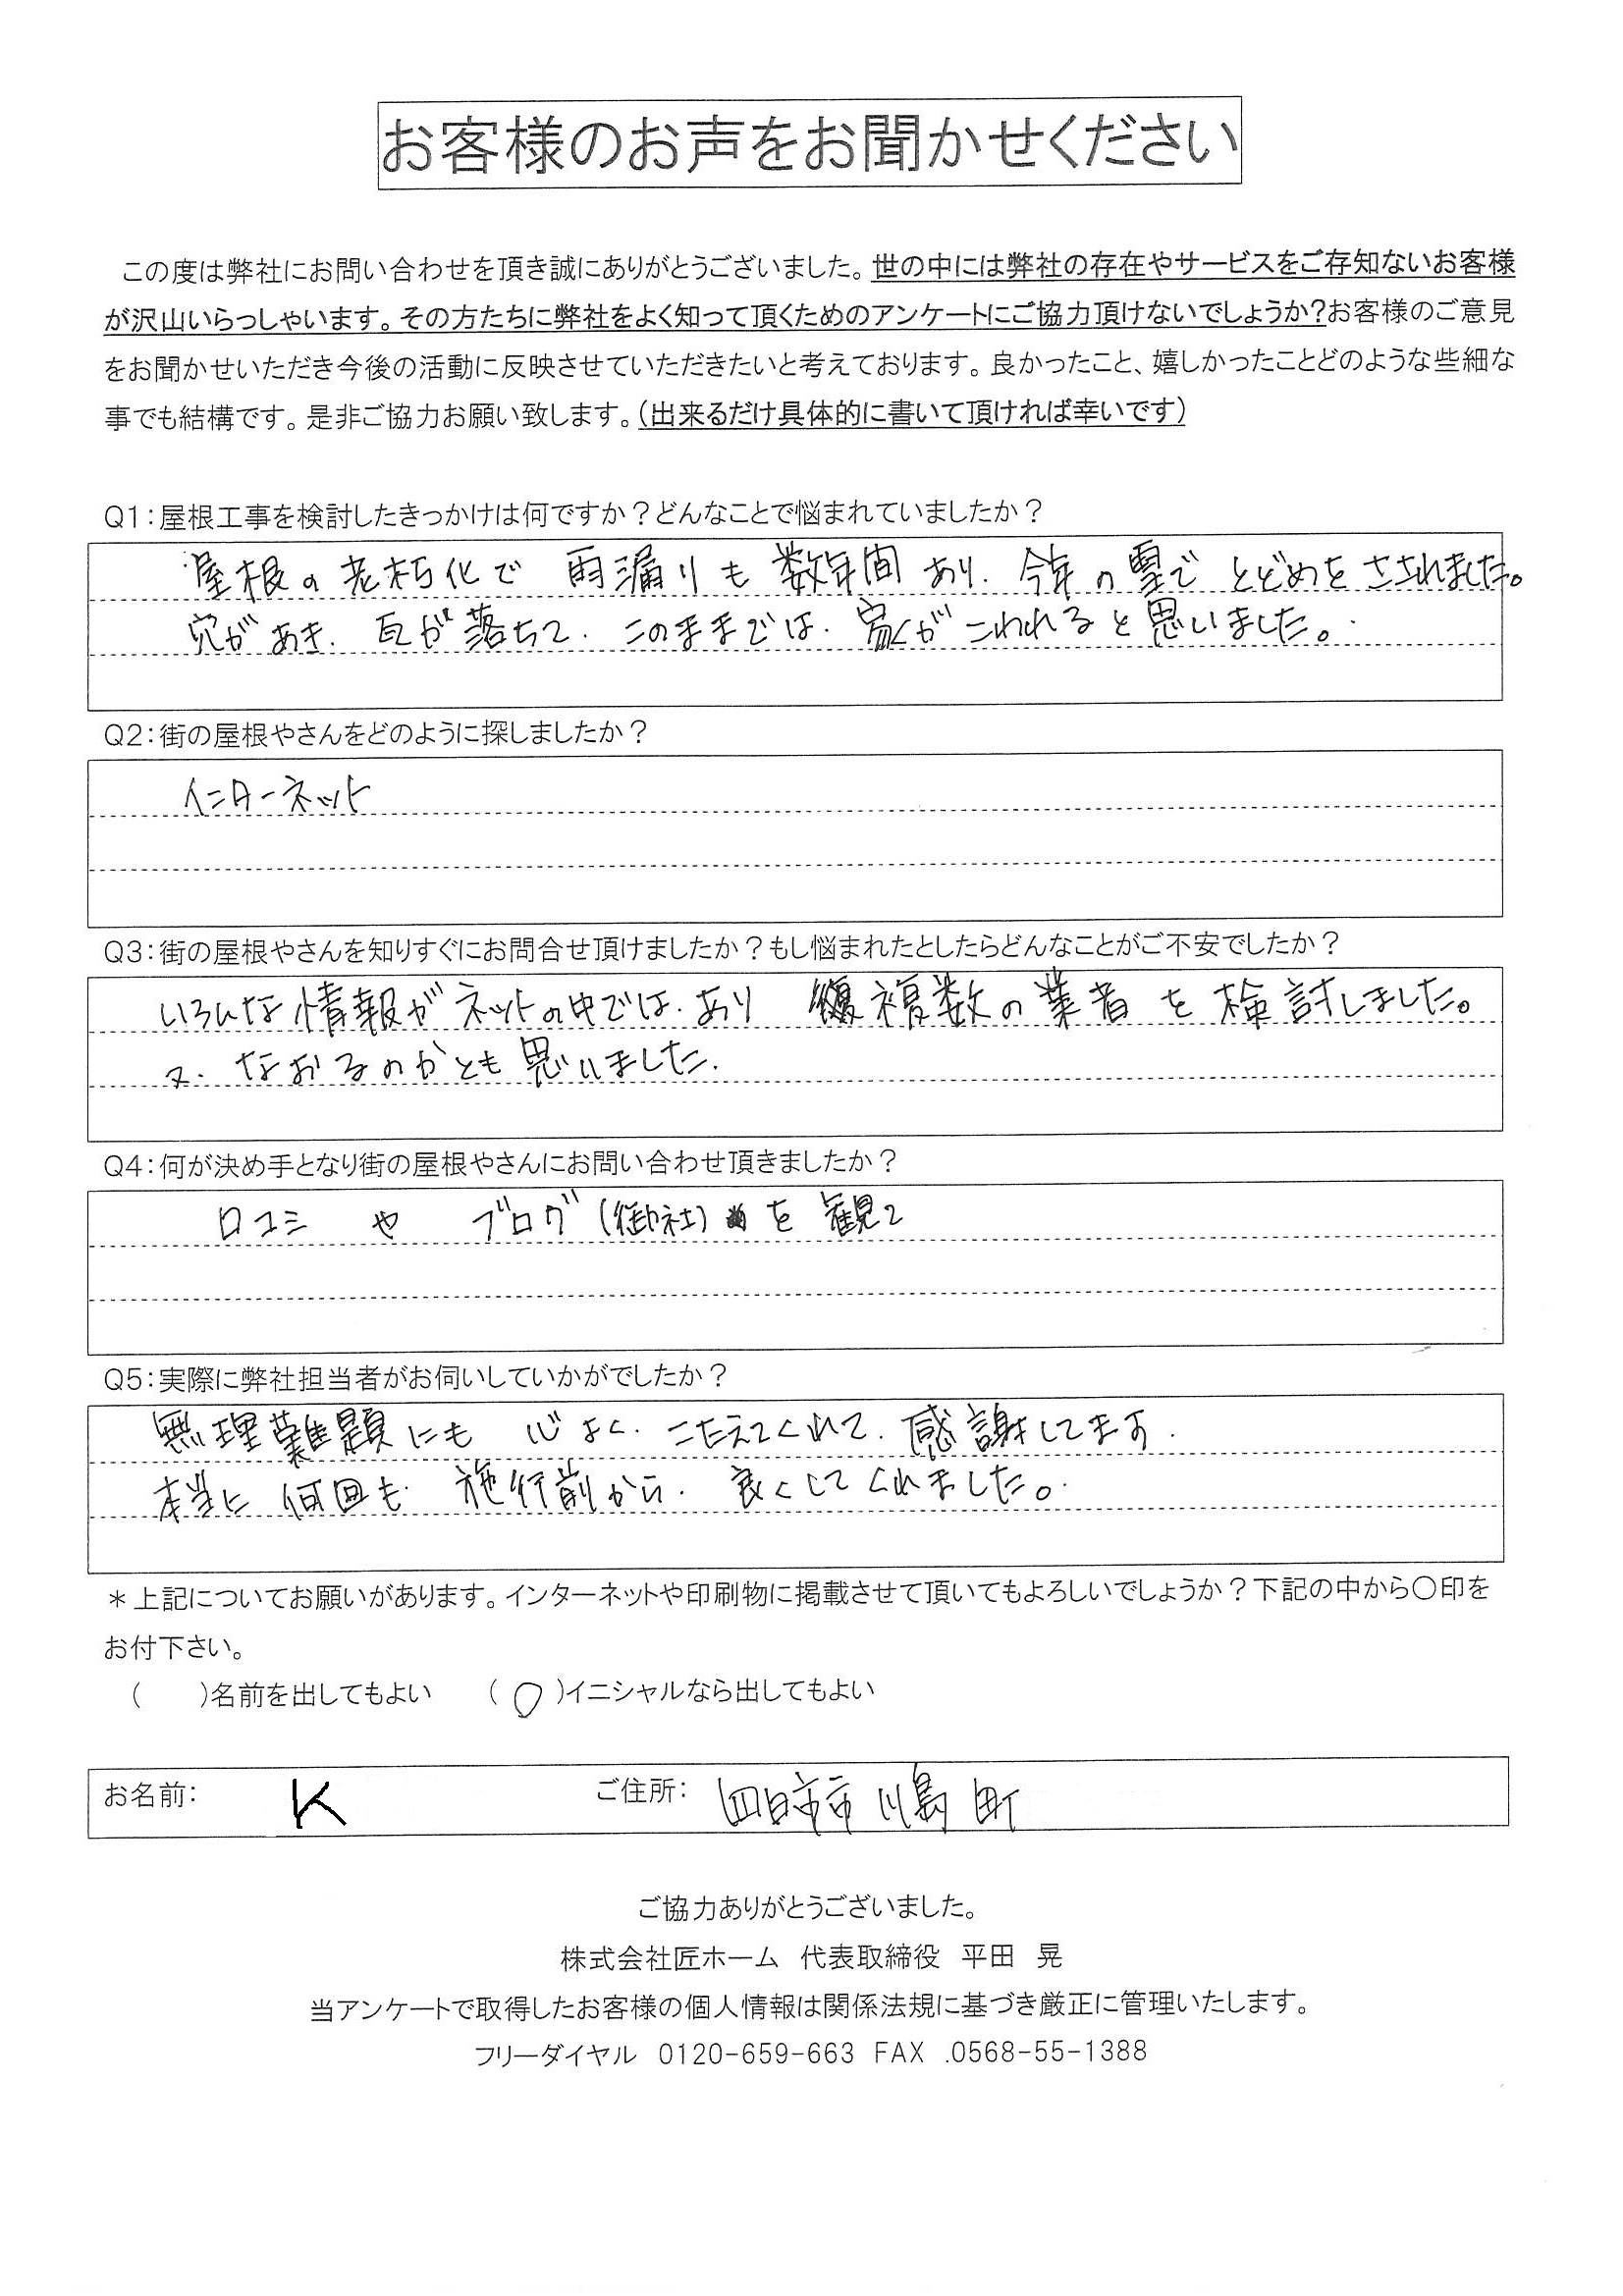 お客様のお声をお聞かせください
この度は弊社にお問い合わせを頂き誠にありがとうございました。世の中には弊社の存在やサービスをご存知ないお客様
が沢山いらっしゃいます。その方たちに弊社をよく知って頂くためのアンケートにご協力頂けないでしょうか?お客様のご意見
をお聞かせいただき今後の活動に反映させていただきたいと考えております。良かったこと、嬉しかったことどのような些細な
事でも結構です。是非ご協力お願い致します。(出来るだけ具体的に書いて頂ければ幸いです)
Q1:屋根工事を検討したきっかけは何ですか?どんなことで悩まれていましたか?
屋根の老朽化で 雨漏りも数年間あり、今年の雪で とどめをさされました。
穴があき、瓦が落ちて、このままでは、家がこわれると思いました。
Q2:街の屋根やさんをどのように探しましたか?
インターネット
Q3:街の屋根やさんを知りすぐにお問合せ頂けましたか?もし悩まれたとしたらどんなことがご不安でしたか?
いろんな情報がネットの中では、あり 複数の業者を検討しました。
又、なおるのかとも思いました、
Q4:何が決め手となり街の屋根やさんにお問い合わせ頂きましたか?
口コミ や ブログ(御社)を観て
Q5:実際に弊社担当者がお伺いしていかがでしたか?
無理難題にも 心よく、こたえてくれて、感謝してます、
本当に何回も、施行前から、良くしてくれました。
*上記についてお願いがあります。インターネットや印刷物に掲載させて頂いてもよろしいでしょうか?下記の中から〇印を
お付下さい。
(  )名前を出してもよい  (〇)イニシャルなら出してもよい
お名前: K ご住所: 四日市市川島町
ご協力ありがとうございました。
株式会社匠ホーム 代表取締役 平田 晃
当アンケートで取得したお客様の個人情報は関係法規に基づき厳正に管理いたします。
フリーダイヤル 0120-659-663 FAX .0568-55-1388